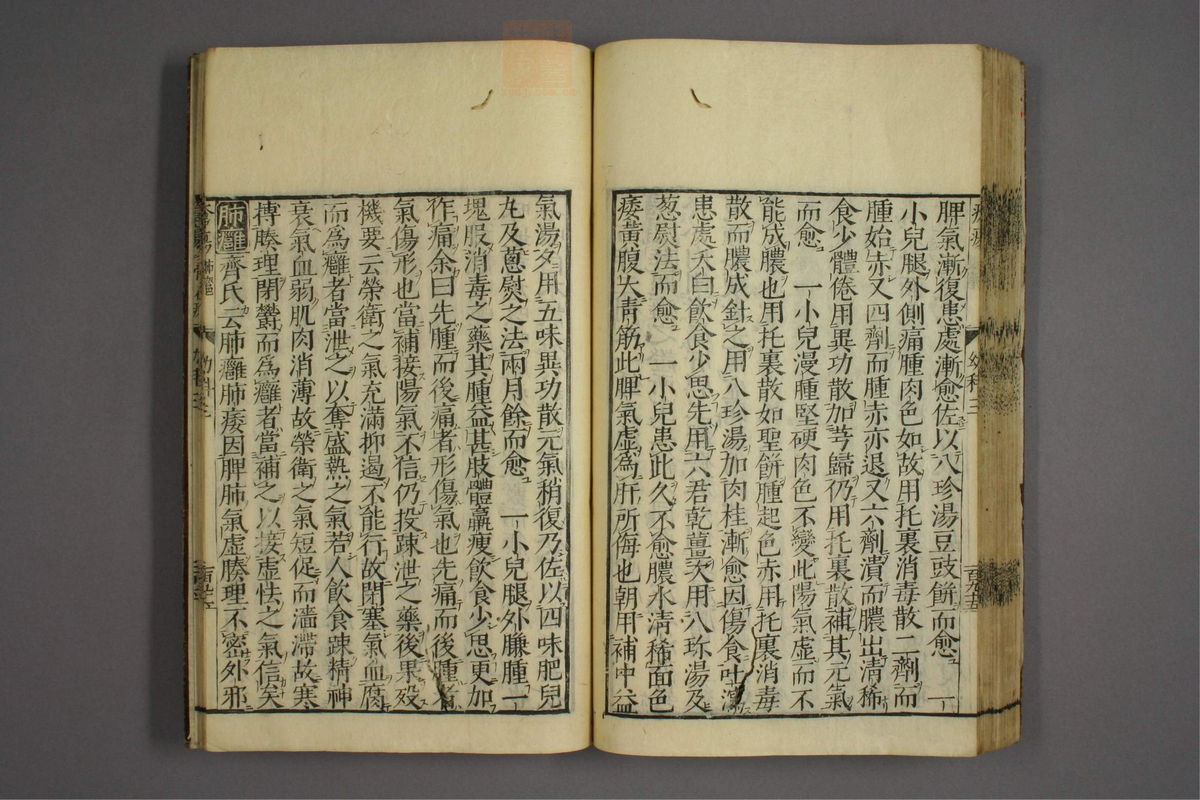 脾氣漸復患處漸愈佐以八珍湯豆豉餅而愈 一
小兒腿外側痛腫肉色如故用托裏消毒散二劑而
腫始赤又四劑而腫赤亦退又六劑潰而膿出清稀
食少體倦用異功散加芎歸仍用托裏散補其元氣
而愈 一小兒漫腫堅硬肉色不變此陽氣虛而不
能成膿也用托裏散如聖餅腫起色赤用托裏消毒
散而膿成針之用八珍湯加肉桂漸愈因傷食吐瀉
患處夭白飲食少思先用六君乾薑又用八珎湯及
葱熨法而愈 一小兒患此久不愈膿水清稀面色
痿黃腹大青筋此脾氣虛為肝所侮也朝用補中益
氣湯夕用五味異功散元氣稍復乃佐以四味肥兒
丸及蔥熨之法兩月餘而愈 一小兒腿外臁腫一
塊服消毒之藥其腫益甚肢體羸瘦飲食少思更加
作痛余曰先腫而後痛者形傷氣也先痛而後腫者
氣傷形也當補接陽氣不信仍投踈泄之藥後果歿
機要云榮衛之氣充滿抑遏不能行故閉塞氣血腐
而為癰者當泄之以奪盛熱之氣若人飲食踈精神
衰氣血弱肌肉消薄故榮衛之氣短促而濇滯故寒
搏腠理閉鬱而為癰者當補之以接虛怯之氣信矣
肺癰 齊氏云肺癰肺痿因脾肺氣虛腠理不密外邪
幼科三